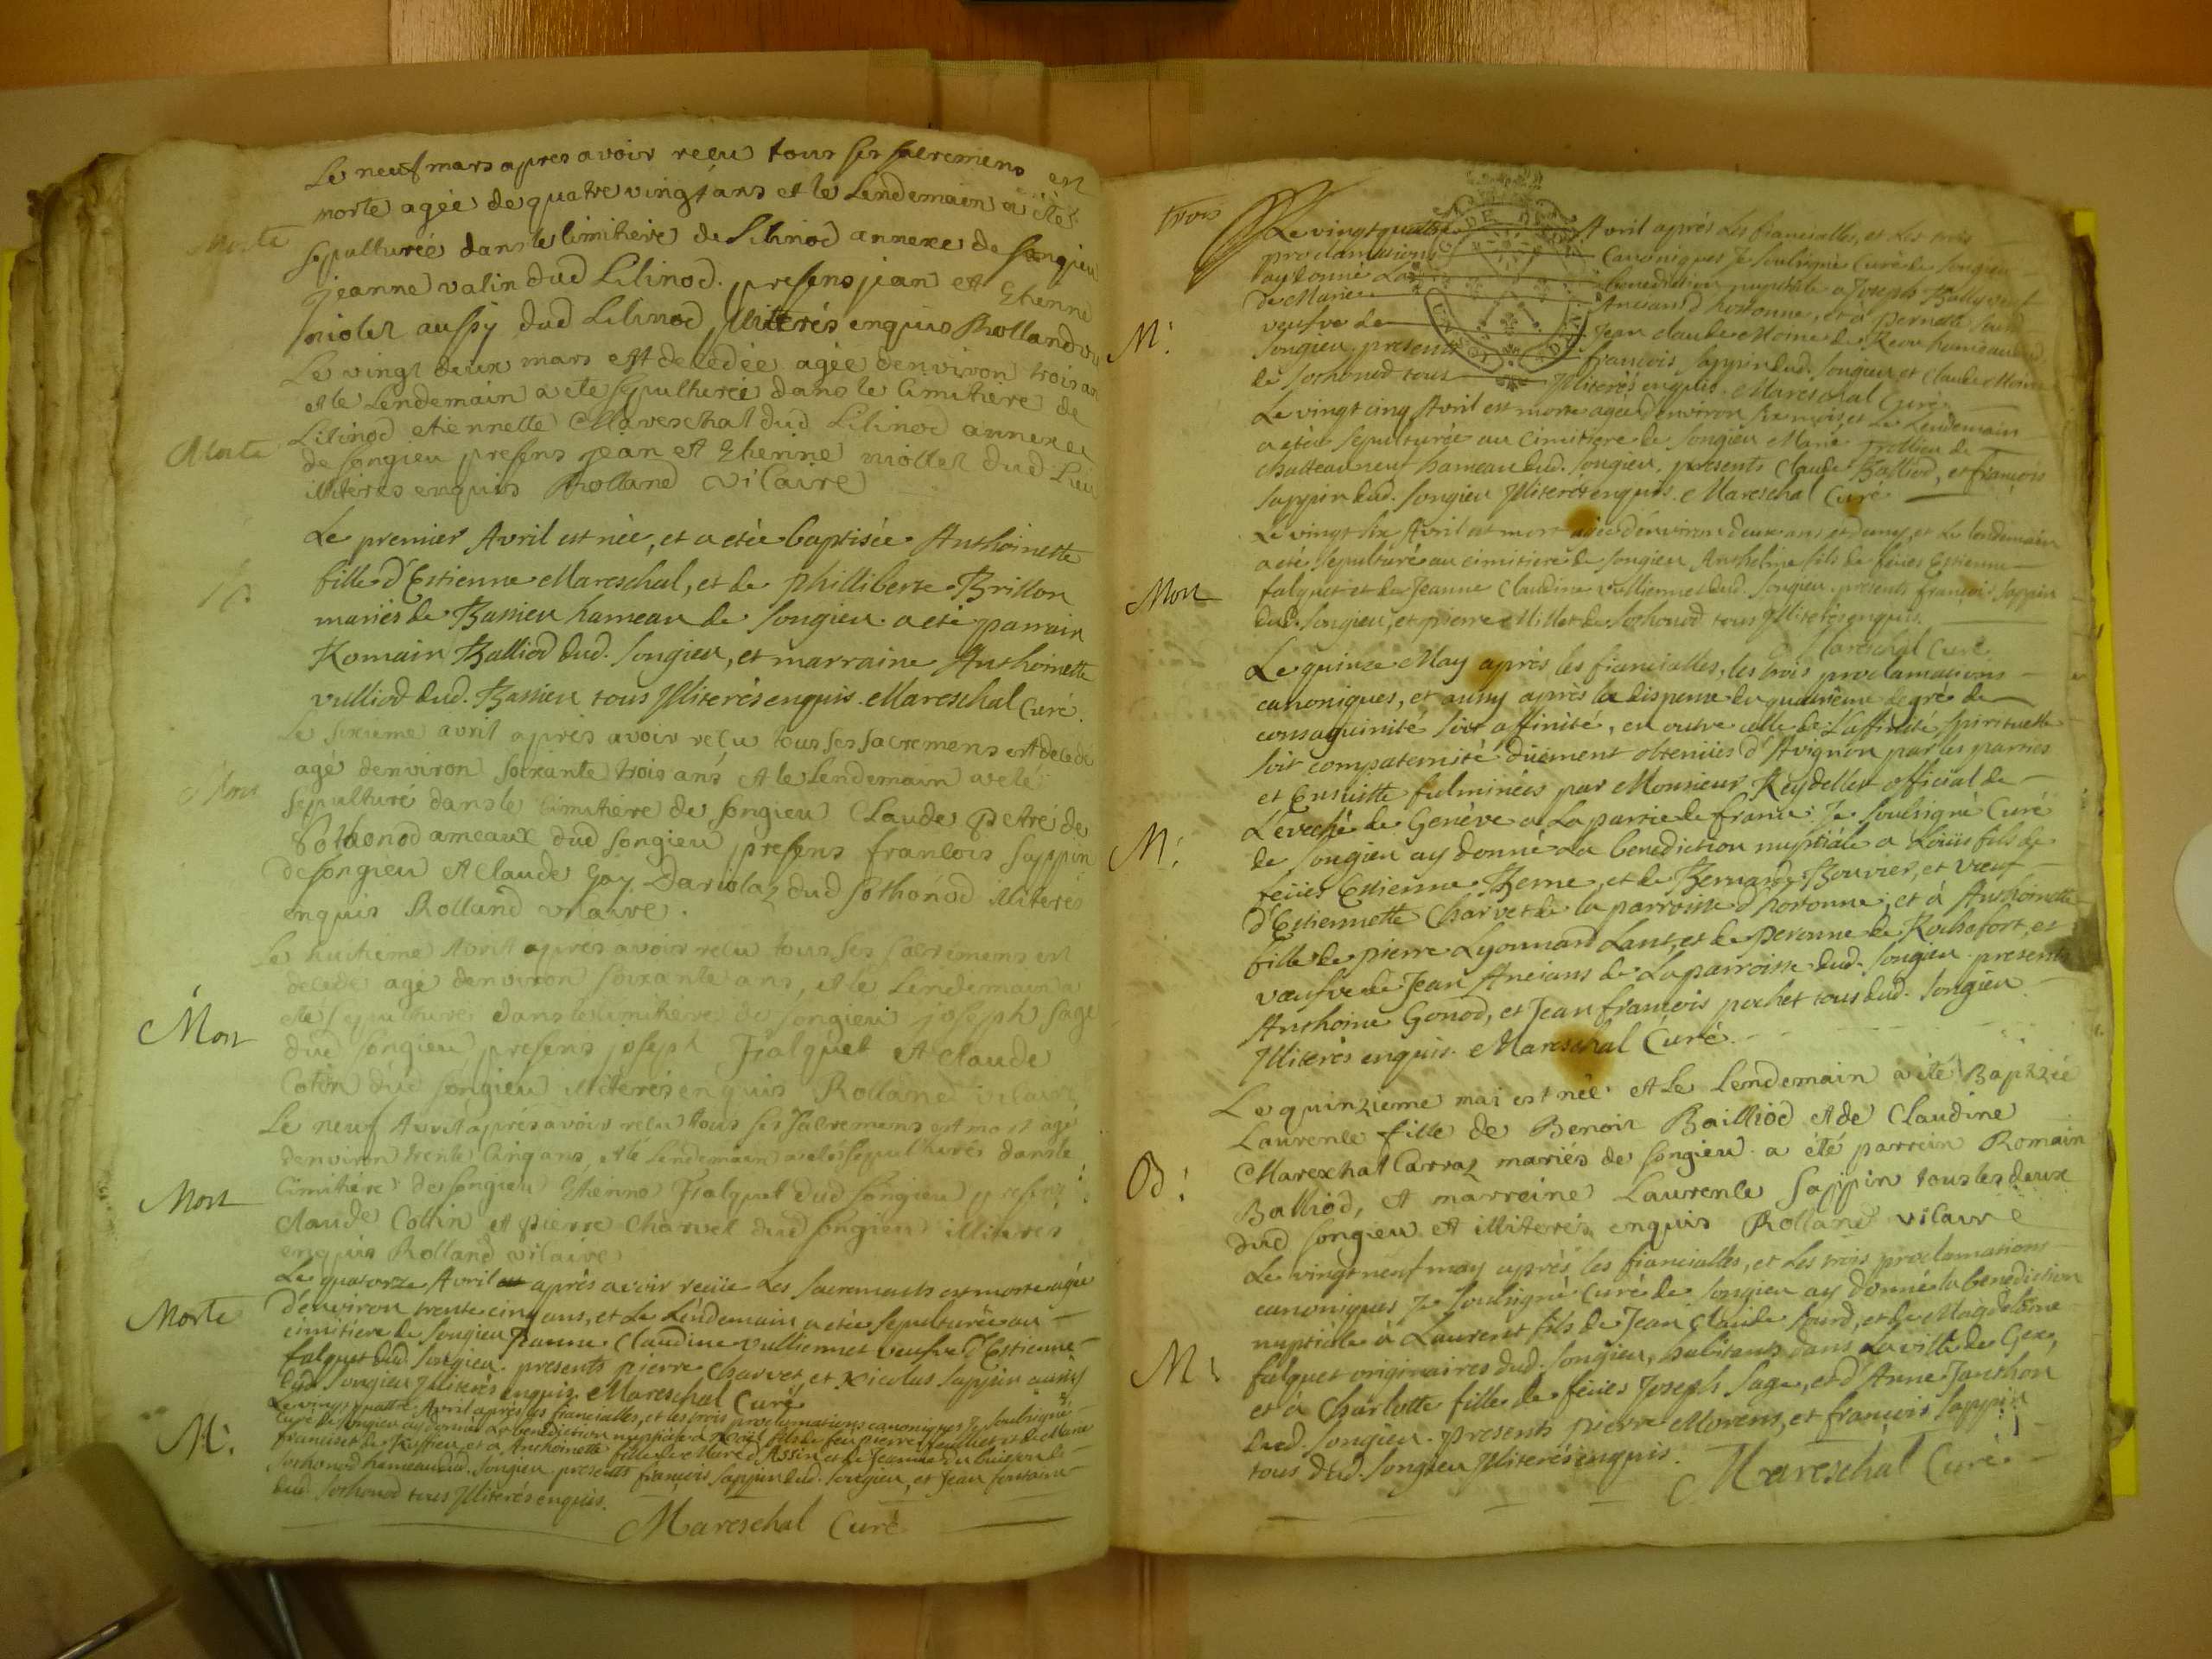 Le neuf mars apres avoir reçu tous ses sacremens est
morte agée de quatre vingt ans et le Lendemain a été
Morte
sepulturée dans le cimitiere de Lilinod annexe de songieu
jeanne valin dud Lilinod. presens jean et Etienne
miolet aussy dud Lilinod illiterés enquis Rolland vic
Le vingt deux mars est decedée agée denviron trois ans
et le Lendemain a eté sepulturée dans le cimitiere de
Morte
Lilinod etiennette Mareschal dud Lilinod annexe
de songieu presens jean et Etienne miollet dud Lieu
illiterés enquis Rolland vicaire
Le premier Avril est née, et a etée baptisée Anthoinette
fille d'Estienne Mareschal, et de Philliberte Brillon
mariés de Bassieu hameau de songieu. a eté parrain
Romain Balliod dud. songieu, et marraine Anthoinette
vulliod dud. Bassieu tous Illiterés enquis. Mareschal Curé.
Le sixieme avril aprés avoir reçu tous ses sacremens est decedé
agé denviron soixante trois ans et le lendemain a eté
Mort
sepulturé dans le cimitiere de songieu Claude petre de
Sothonod ameaux dud songieu presens francois sappin
de songieu et Claude Goy Dariolaz dud sothonod illiteres
enquis Rolland vicaire.
Le huitieme Avril apres avoir reçu tous ses sacremens est
decedé agé denviron soixante ans, et le Lendemain a
eté sepulturé dans le cimitiere de songieu joseph sage
Mort
dud songieu presens joseph Falquet et claude
Cotin dud songieu illiterés enquis Rolland vicaire
Le neuf Avril aprés avoir reçu tous ses sacremens est mort agé
denviron trente cinq ans, et le Lendemain a eté sepulturés dans le
Mort
cimitiere de songieu Etienne Falquet dud songieu presens
claude Cottin et pierre charvet dud songieu illiterés
enquis Rolland vicaire
Le quatorze Avril aprés avoir reçüe Les sacrements est morte agée
Morte
d'environ trente cinq ans, et Le Lendemain a etée sepulturée au
cimitiere de songieu Jeanne Claudine vulliermet veufve d'Estienne
falquet dud. songieu. presents pierre Charvet et Nicolas sappin aussy
dud. songieu Illiterés enquis. Mareschal Curé
Le vingt quattre Avril après les fiancialles, et les trois proclamations canoniques Je soulsigné
M.
Curé de songieu ay donnée La benediction nuptiale a fils de feu pierre et de Marie
francet de Ruffieu et a Anthoinette fille de Mare d'Assin et de Jeanne du buisson de
sothonod hameau dud. songieu. presents françois sappin dud. songieu, et Jean fontaine
dud. sothonod tous Illiterés enquis.
Mareschal Curé
trois
Le vingt quattre Avril aprés les fiancialles, et les trois
proclamations canoniques Je soulsigné Curé de songieu
ay donné La benediction nuptiale a Joseph Ballyvet
de Marieu Anciand hotonne, et à pernette
M.
veufve de Jean claude Moine de hameau dud
songieu, presents françois sappin dud. songieu et Claude Moine
de sothonod tous Illiterés enquis. Mareschal Curé
Le vingt cinq Avril est morte agée d'environ six mois et Le Lendemain
a etée sepulturée au cimitiere de songieu Marie Trollieu de
chatteauneuf hameau dud. songieu. presents Claude Balliod, et françois
sappin dud. songieu Illiterés enquis. Mareschal Curé
Le vingt six Avril est mort agé d'environ deux ans et demy, et Le lendemain
a eté sepulturé au cimitiere de songieu Anthelme fils de feües Estienne
Mort
falquet et de Jeanne Claudine vulliermet dud. songieu. presents françois sappin
dud. songieu, et pierre Millet de sothonod tous Illiterés enquis.
Mareschal Curé
Le quinze May aprés les fiancialles, les trois proclamations
canoniques, et aussy aprés la dispense du quatrieme degré de
consaguinité soit affinité, en outre celle de L'affinité spirituelle
soit compaternité düement obtenües d'Avignon par les parties
et Ensuitte fulminées par Monsieur Reydellet official de
L'eveché de Genéve a La partie de france Je soulsigné Curé
M.
de songieu ay donné La benediction nuptiale a Loüis fils de
feües Estienne Berne, et de Bernarde Bouvier, et vœuf
d'Estiennette Charvet de la parroisse d'hotonne, et à Anthoinette
fille de pierre Lyonnard Lant, et de peronne de Rochefort, et
vœufve de Jean Anciams de La parroisse dud. songieu. presents
Anthoine Gonod, et Jean françois pochet tous dud. songieu
Illiterés enquis. Mareschal Curé.
Le quinzieme mai est née et Le Lendemain a été Baptizée
Laurence fille de Benoit Bailliod et de Claudine
B.
Marexhal Carraz mariés de songieu. a été parrein Romain
Balliod, et marreine Laurence sappin tous les deux
dud songieu et illiterés enquis Rolland vicaire
Le vingt neuf may aprés les fiancialles, et les trois proclamations
canoniques Je soulsigné Curé de songieu ay donné la benediction
nuptiale à Laurent fils de Jean Claude sourd, et de Magdelaine
M.
falquet originaires dud. songieu, habitants dans La ville de Gex,
et à Charlotte fille de feües Joseph Sage, et d'Anne Janthon
dud. songieu. presents pierre Morens, et françois sappin
tous dud. songieu Illiterés enquis.
Mareschal Curé.